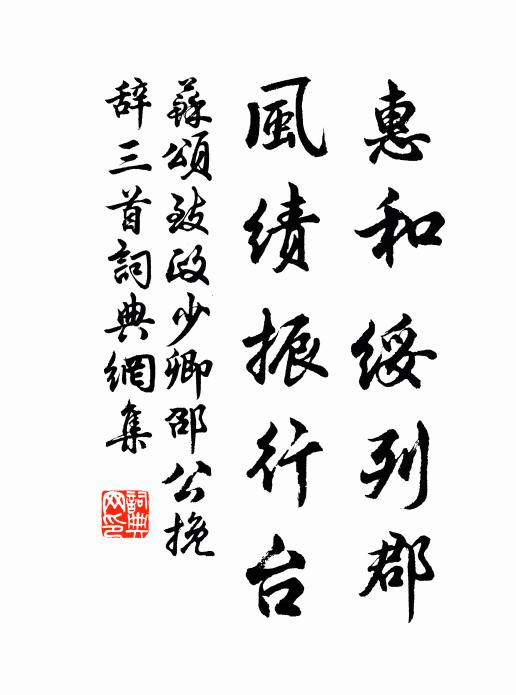 惠和綏列郡
風績振行台
蘇頌致政少卿邵公挽
辞三首詞典網集
詞典網印